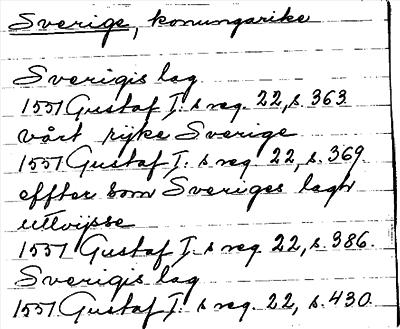 Sverige, konungarike
Sverigis lag
1551 Gustaf I. s reg. 22, s. 363.
vårt rijke Sverige
1551 Gustaf I. s reg. 22, s. 369.
effter som Sveriges lagh
uttvijsse
1551 Gustaf I. s reg. 22, s. 386.
Sverigis lag
1551 Gustaf I. s reg. 22, s. 430.